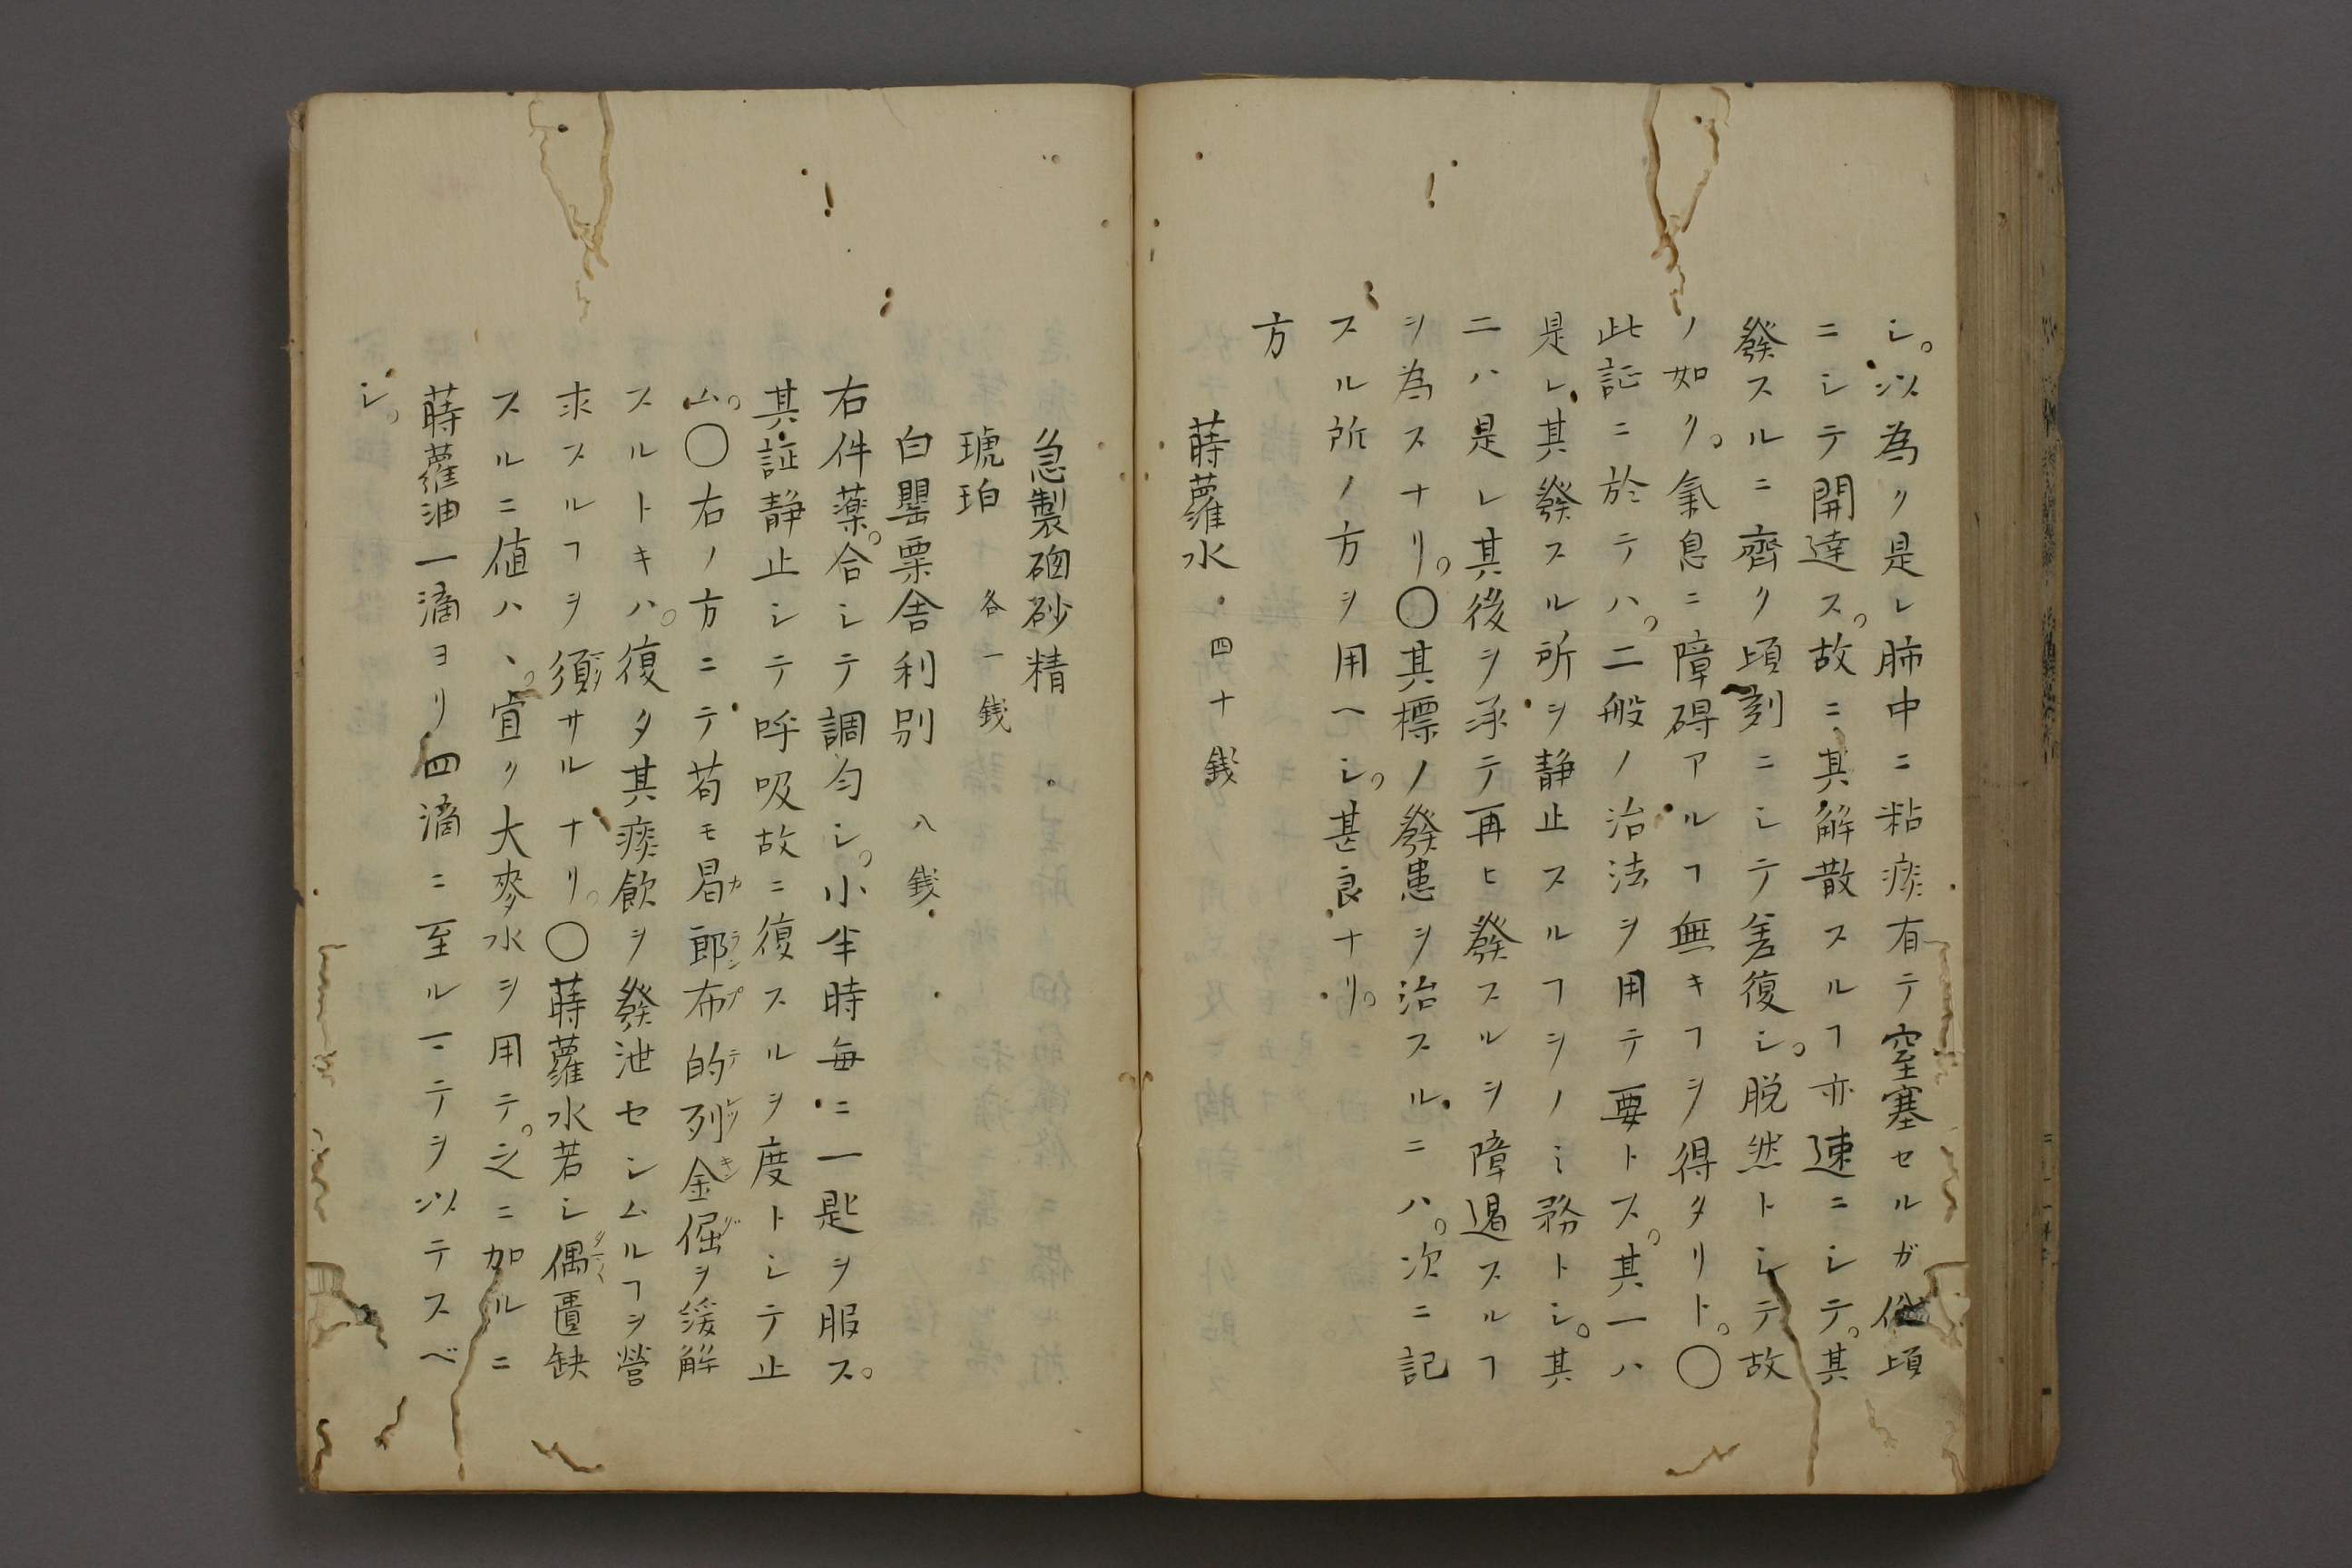 シ。以為ク是レ肺中ニ粘痰有テ窒塞セルガ俄頃
ニシテ開達ス。故ニ其解散スルヿ亦速ニシテ。其
發スルニ齊ク頃刻ニシテ差復シ。脱然トシテ故
ノ如ク。氣息ニ障碍アルヿ無キヿヲ得タリト。〇
此証ニ於テハ。二般ノ治法ヲ用テ要トス。其一ハ
是レ其發スル所ヲ静止スルヿヲノミ務トシ。其
二ハ是レ其後ヲ承テ再ヒ發スルヲ障遏スルヿ
ヲ為スナリ。〇其標ノ發患ヲ治スルニハ。次ニ記
スル所ノ方ヲ用ヘシ。甚良ナリ。
方
蒔蘿水 四十銭
急製硇砂精
琥珀 各一銭
白罌粟舎利別 八銭
右件薬。合シテ調匀シ。小半時毎ニ一匙ヲ服ス。
其証静止シテ呼吸故ニ復スルヲ度トシテ止
ム。〇右ノ方ニテ苟モ曷郎布的列金倔ヲ緩解
スルトキハ。復タ其痰飲ヲ發泄センムルヿヲ營
求スルヿヲ須サルナリ。〇蒔蘿水若シ偶匱缺
スルニ値ハヽ。宜ク大麥水ヲ用テ。之ニ加ルニ
蒔蘿油一滴ヨリ四滴ニ至ルマテヲ以テスベ
シ。